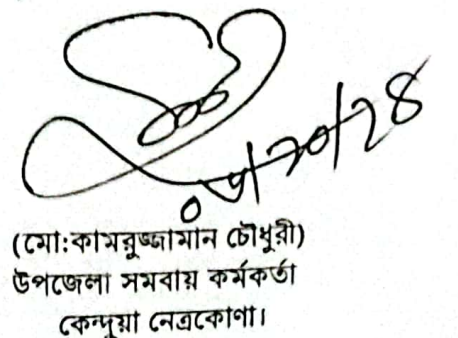 ০৬/১০/২৪
(মো:কামরুজ্জামান চৌধুরী)
উপজেলা সমবায় কর্মকর্তা
কেন্দুয়া নেত্রকোণা।